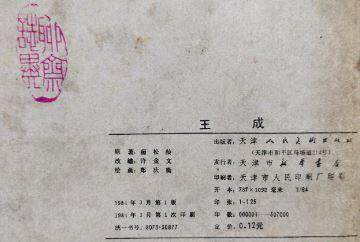 聊斋志异
王 成
原著:蒲松龄
改编:许金文
绘画:郑庆衡
1981年3月第1版
1981年3月第1次印刷
统一书号:8073·30877
出版者:天津人民美术出版社
(天津市和平区马场道214号)
发行者:天津市新华书店
印刷者:天津市人民印刷厂
开本:787×1092毫米 1/64
印张:1-125
印数:000001-507000
定价:0.12元